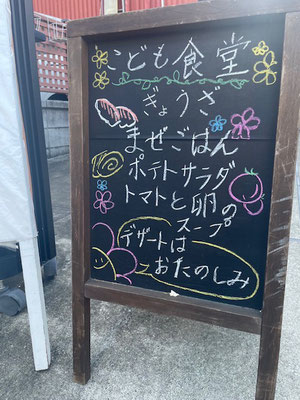 こども食堂
ぎょうざ
まぜごはん
ポテトサラダ
トマトと卵の
スープ
デザートは
おたのしみ